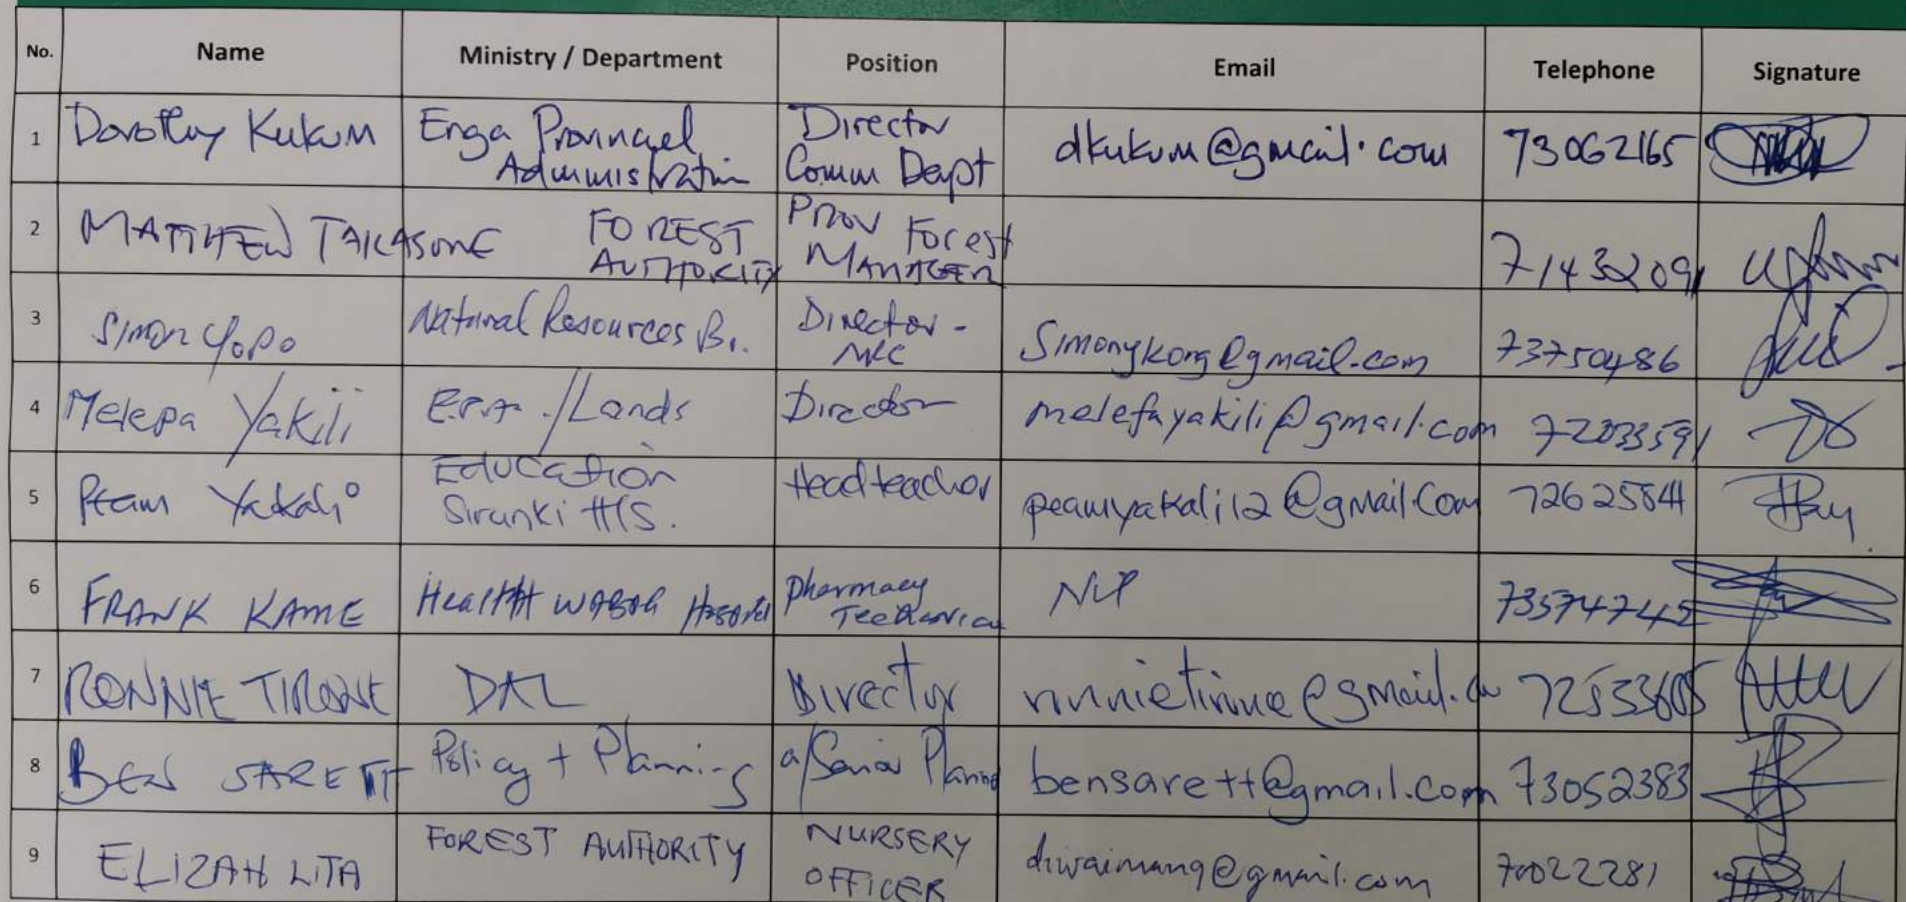 No. Name Ministry / Department Position Email Telephone Signature
1 Dorothy Kukum Enga Provincial Administration Director Comm Dept dkukum@gmail.com 73062165
2 MATTHEW TAKASONE FOREST AUTHORITY Prov Forest MANAGER 71432091
3 Simon Yopo Natural Resources Br. Director - simonykong@gmail.com 73750486
4 Melepa Yakili E.P.A./Lands Director melepayakili@gmail.com 72033591
5 Peam Yakali Education Sirunki H/S. Headteacher peamyakali12@gmail.com
6 FRANK KAME Health WABAG Hospital Pharmacy 73574742
7 RONNIE TIRONE DAL Director 72533605
8 BEN SARETT Policy + Planning a/Senior bensarett@gmail.com 73052383
9 ELIZAH LITA FOREST AUTHORITY NURSERY OFFICER diwaimang@gmail.com 70022281